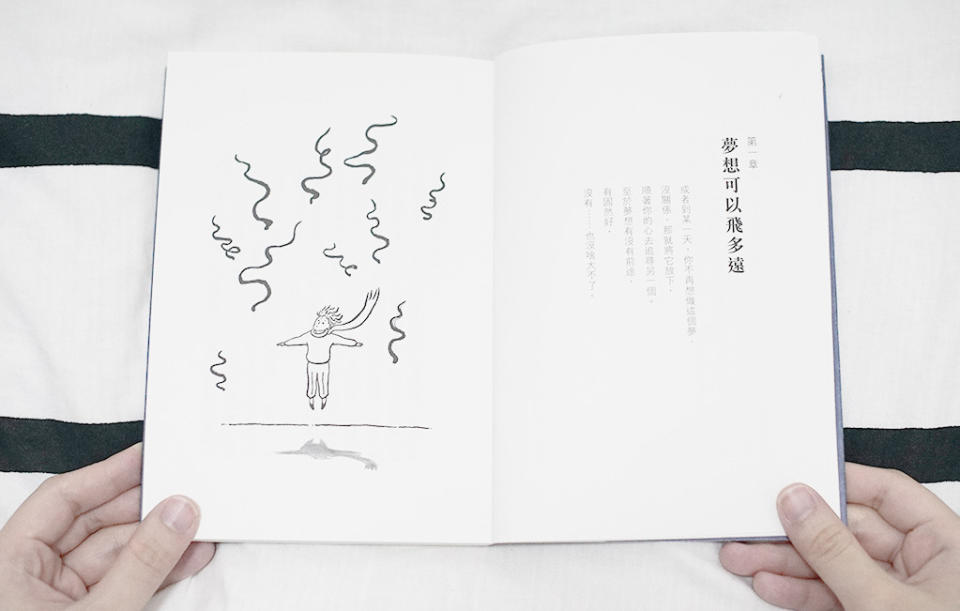 第一章
夢想可以飛多遠
或者到某一天，你不再想做這個夢，
沒關係，那就將它放下，
順著你的心去追尋另一個。
至於夢想有沒有前途，
有固然好，
沒有……也沒啥大不了。